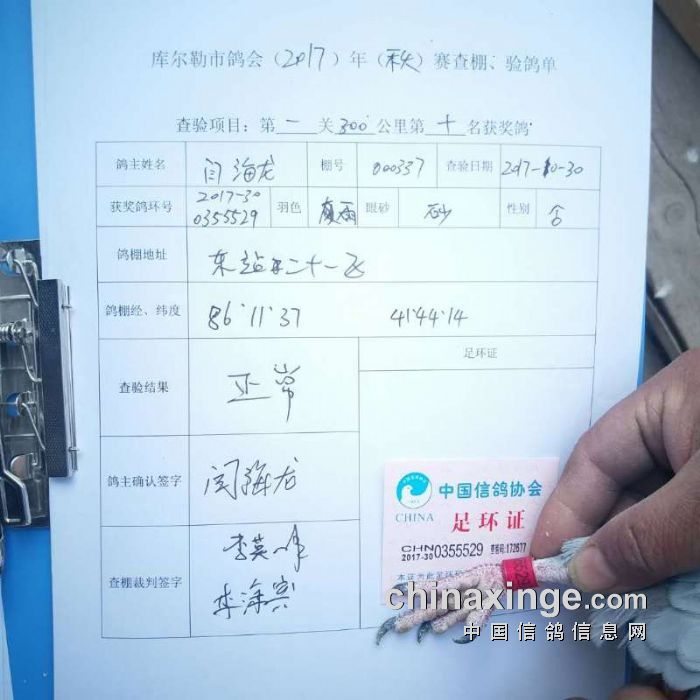 库尔勒市鸽会（2017）年（秋）赛查棚、验鸽单
查验项目：第 一 关 300 公里第 十 名获奖鸽
鸽主姓名 闫海龙 棚号 000337 查验日期 2017-10-30
获奖鸽环号 2017-30 0355529 羽色 眼砂 砂 性别
鸽棚地址 东站 二十一
鸽棚经、纬度 86°11'37 41°44'14
足环证
查验结果 正常
鸽主确认签字 闫海龙
查棚裁判签字 李英峰
李
中国信鸽协会
CHINA 足环证
CHN
2017-30 0355529 查密码:172677
本证为此足环
chinaxinge.com
中国信鸽信息网